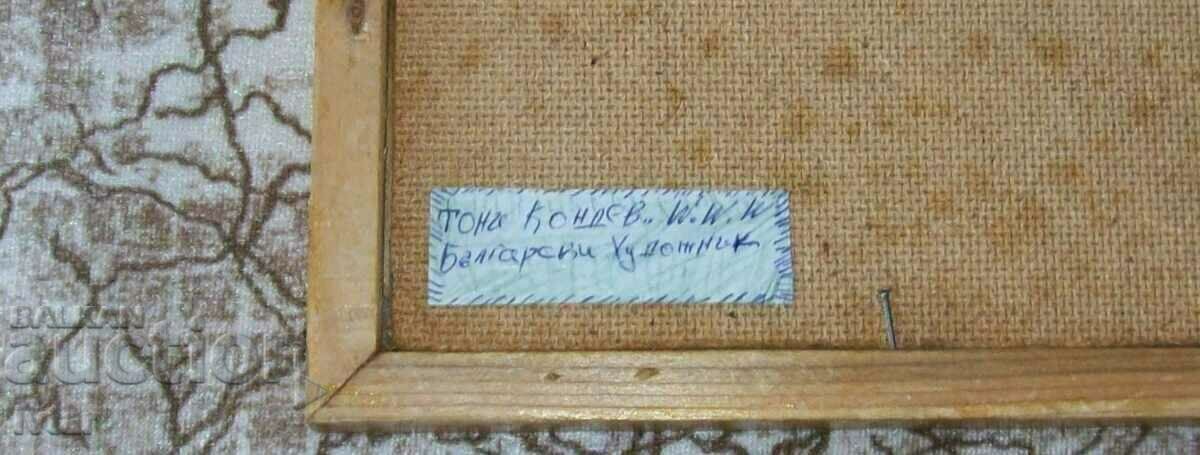 Тони Кондев.. W.W.W
Български Художник
BALKAN
auction